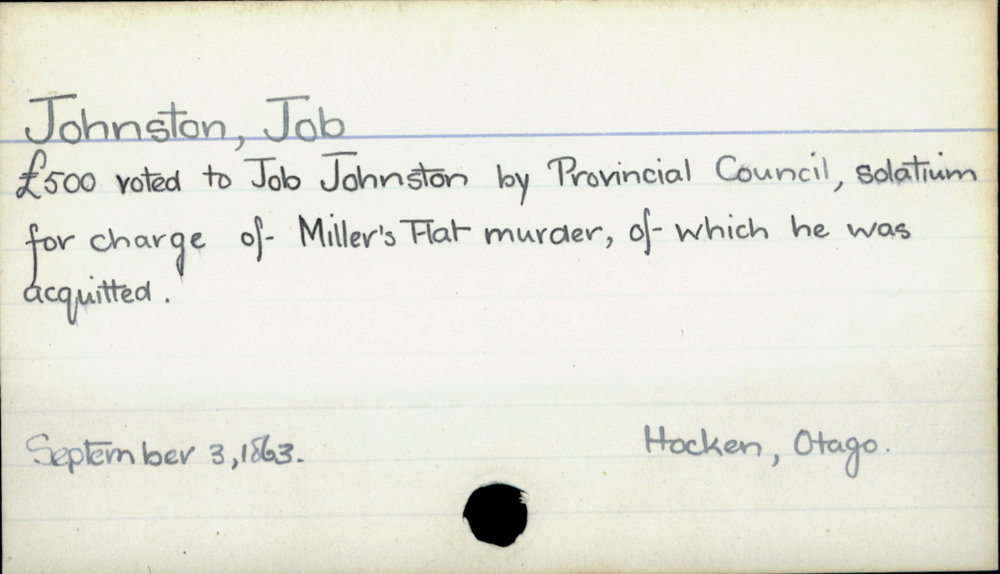 Johnston, Job
£500 voted to Job Johnston by Provincial Council, solatium
for charge of Miller's Flat murder, of which he was
acquitted.
September 3, 1863.
Hocken, Otago.